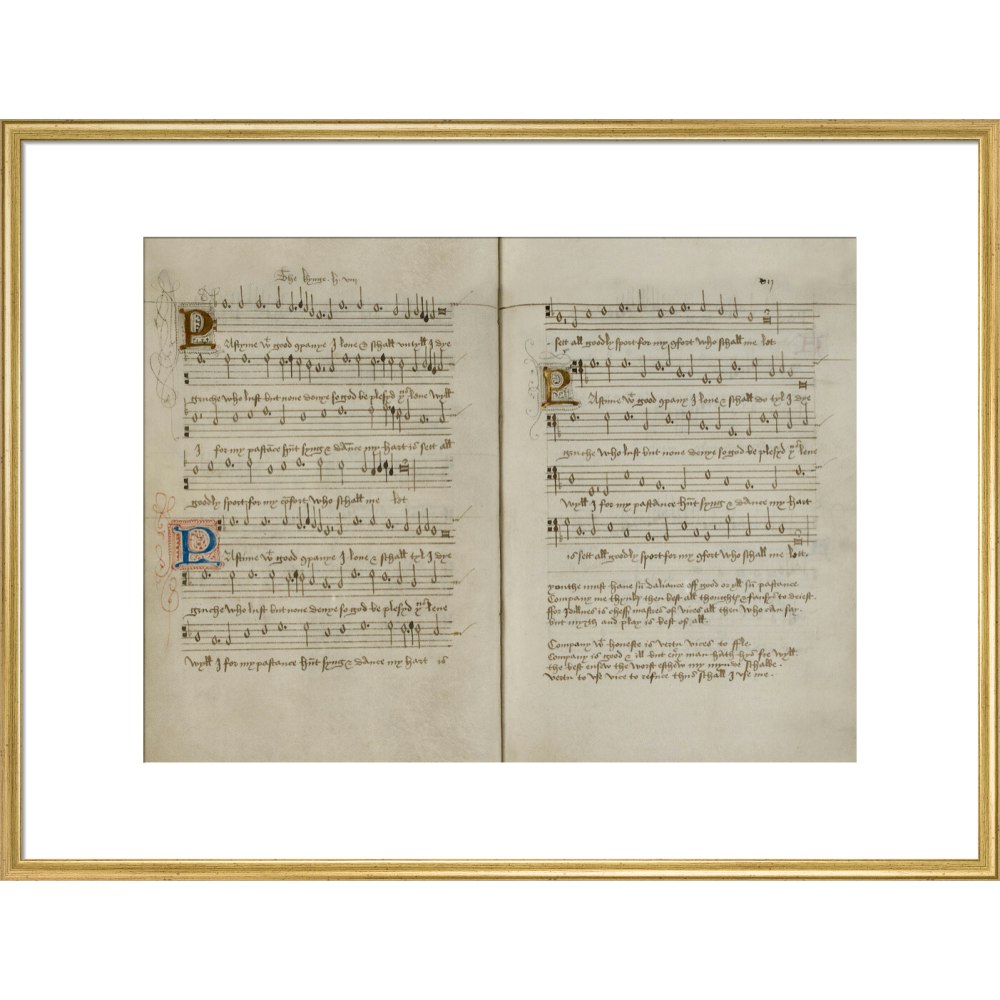 The kynge h viij
PAstyme wt good companye I love & schall untyll I dye
gruche who lust but none denye so god be plesyd yus leve wyll
I for my pastãce hũt syng & dãce my hart is sett all
goodly sport for my cõfort who schall me let
PAstime wt good companye I love & schall tyl I dye
gruche who lust but none denye so god be plesyd yus leve
wyll I for my pastance hũt syng & dance my hart is
vij
sett all goodly sport for my cfort who schall me let
PAstime wt good company I love & schall do tyl I dye
gruche who lust but none denye so god be plesyd yus leve
wyll I for my pastance hũt syng & dance my hart
is sett all goodly sport for my cfort who schall me lett.
youthe must have sũ daliance off good or yll sũ pastance
Company me thynks then best all thoughts & fansys to deiest.
ffor Idillnes is cheff mastres of vices all then who can say.
but myrth and play is best of all.
Company wt honeste is vertu vices to ffle.
Company is good & ill but evy man hath hys fre wyll.
the best ensew the worst eschew my mynde schalbe.
vertu to use vice to refuce thus schall I use me.